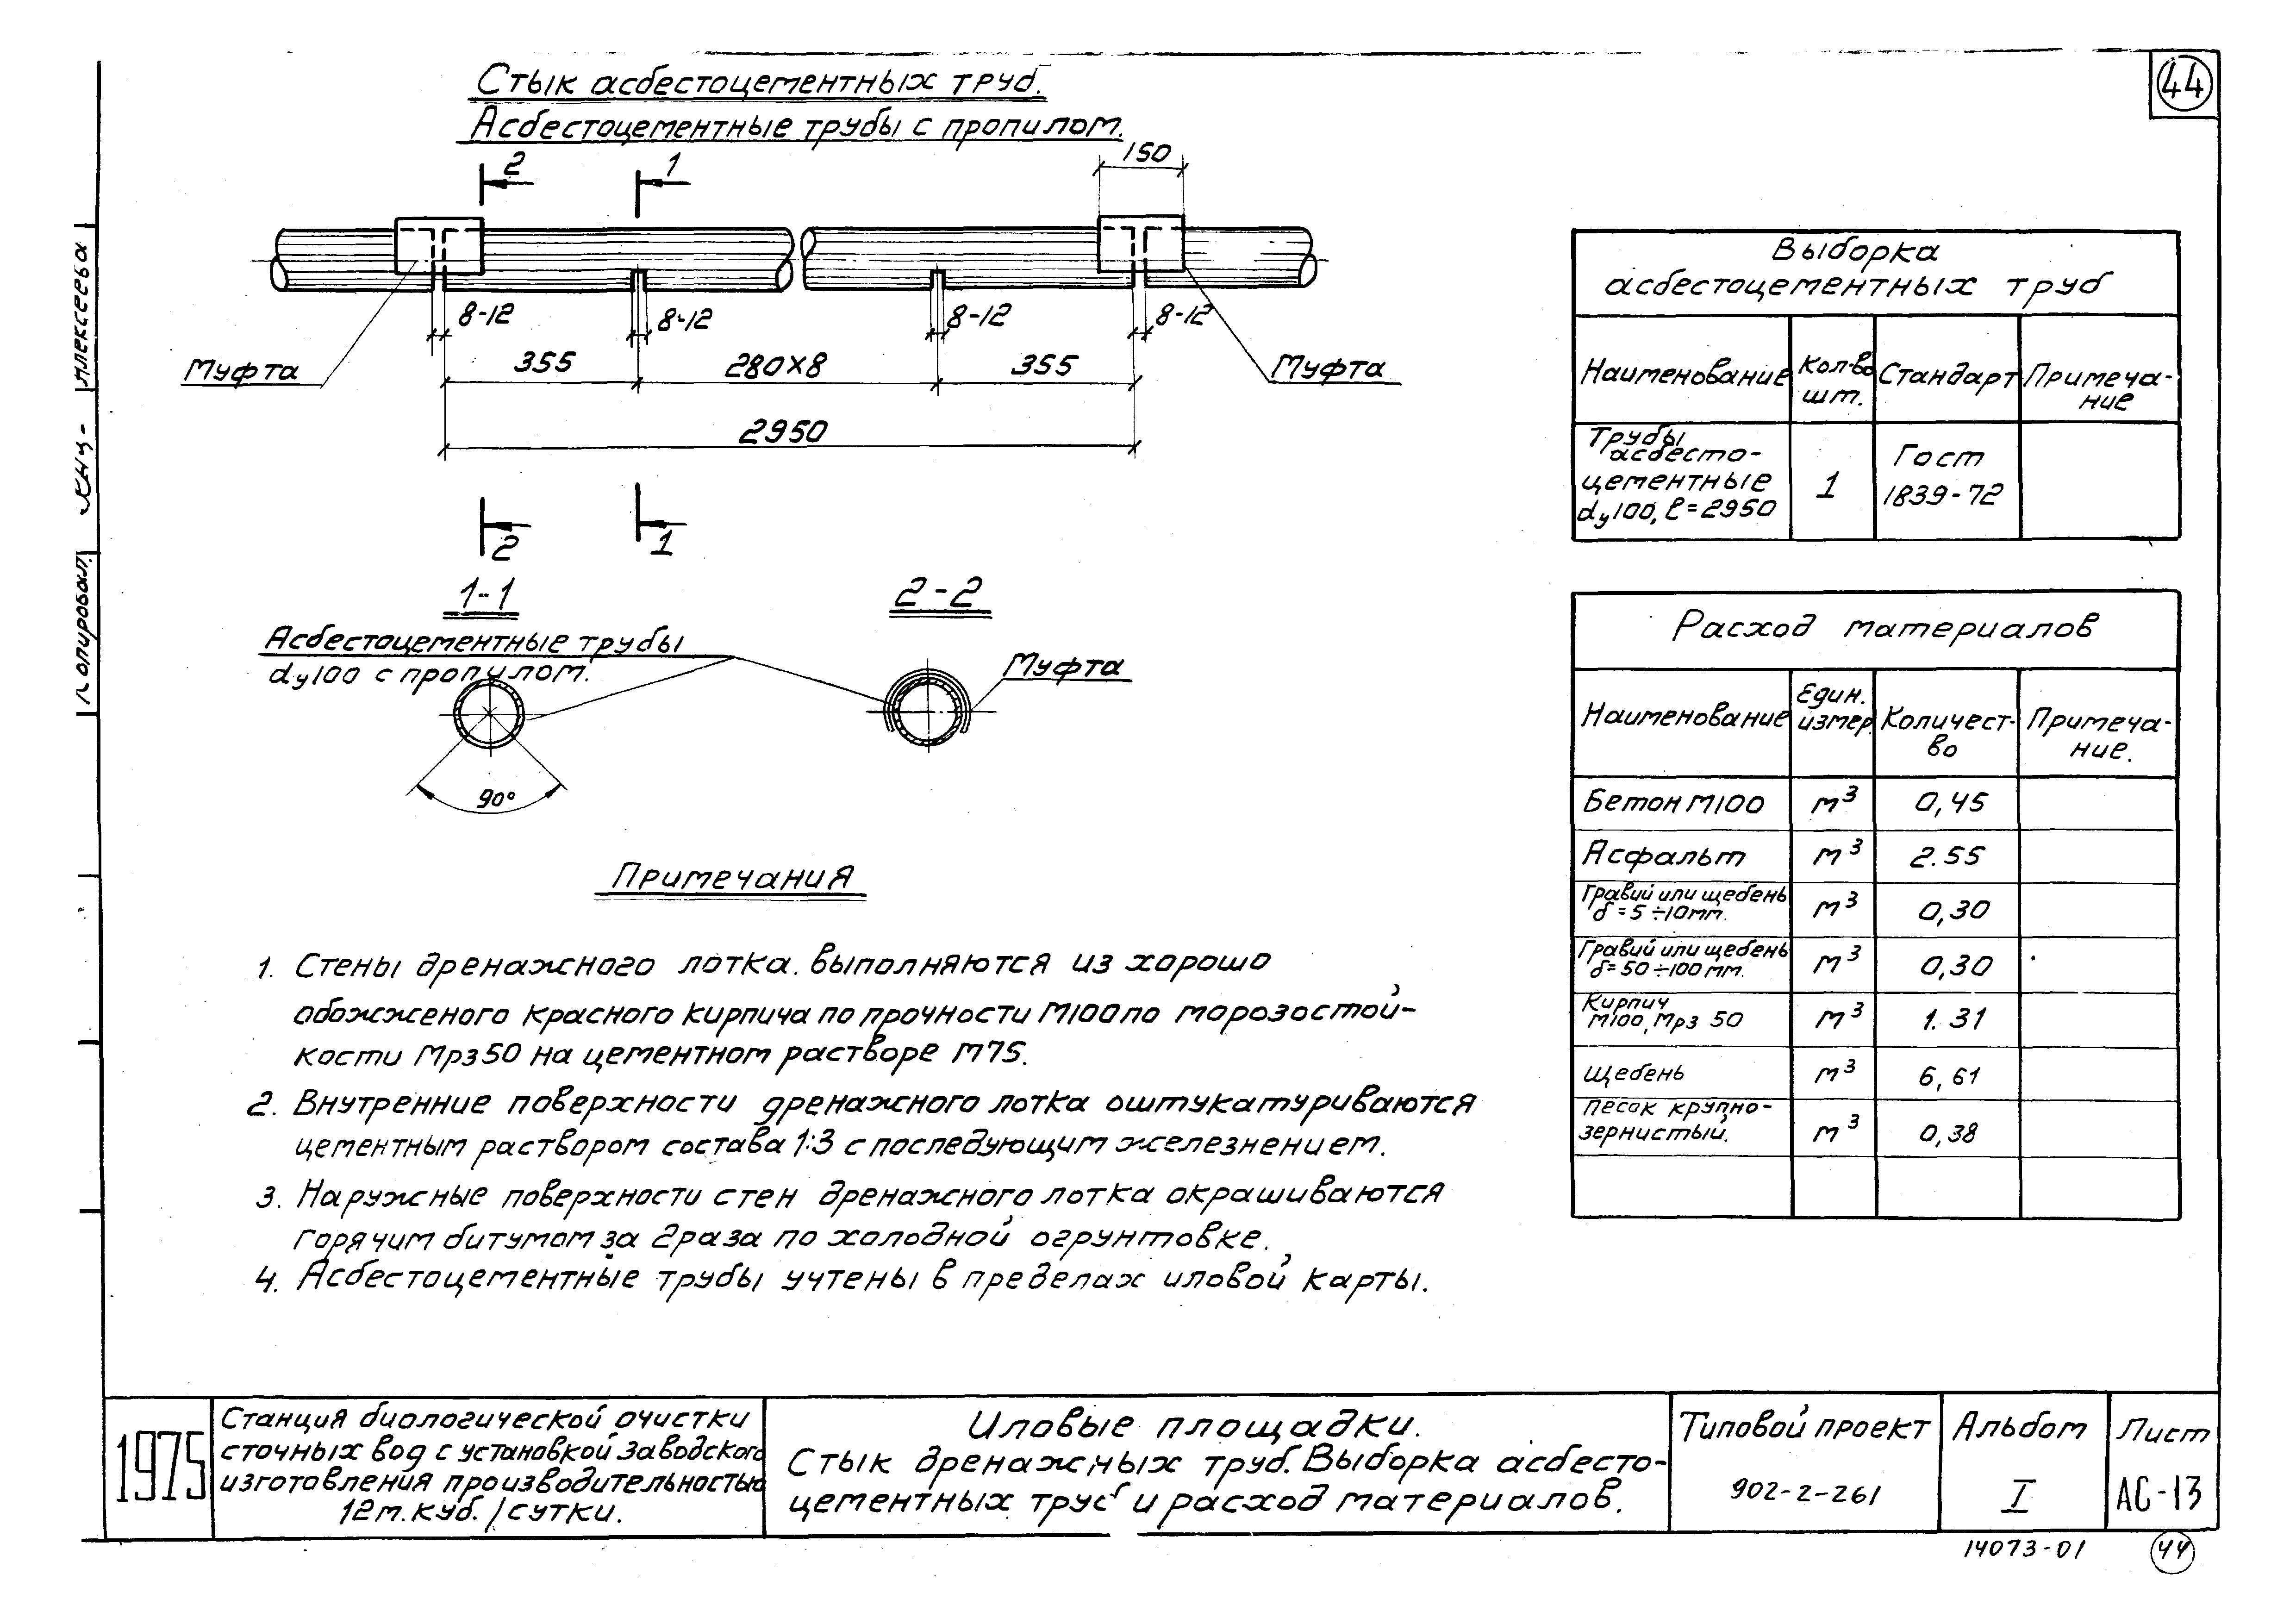 44
Стык асбестоцементных труб.
Асбестоцементные трубы с пропилом.
150
2
1
8-12
8-12
8-12
8-12
Муфта
355
280х8
355
Муфта
2950
2
1
1-1
2-2
Асбестоцементные трубы
dу100 с пропилом.
Муфта
90°
Примечания
1. Стены дренажного лотка выполняются из хорошо
обожженого красного кирпича по прочности М100 по морозостой-
кости Мрз50 на цементном растворе М75.
2. Внутренние поверхности дренажного лотка оштукатуриваются
цементным раствором состава 1:3 с последующим железнением.
3. Наружные поверхности стен дренажного лотка окрашиваются
горячим битумом за 2 раза по холодной огрунтовке.
4. Асбестоцементные трубы учтены в пределах иловой карты.
Выборка
асбестоцементных труб
Наименование Кол-во шт. Стандарт Примеча-
ние
Трубы
асбесто-
цементные
dу100, l=2950
1
Гост
1839-72
Расход материалов
Наименование Един. измер. Количест-
во Примеча-
ние.
Бетон М100 м³ 0,45
Асфальт м³ 2.55
Гравий или щебень
δ=5÷10мм. м³ 0,30
Гравий или щебень
δ=50÷100мм. м³ 0,30
Кирпич
М100, Мрз 50 м³ 1.31
Щебень м³ 6,61
Песок крупно-
зернистый. м³ 0,38
Копировал.
Алексеева
1975
Станция биологической очистки
сточных вод с установкой заводского
изготовления производительностью
12м.куб./сутки.
Иловые площадки.
Стык дренажных труб. Выборка асбесто-
цементных труб и расход материалов.
Типовой проект
902-2-261
Альбом
I
Лист
АС-13
14073-01
44